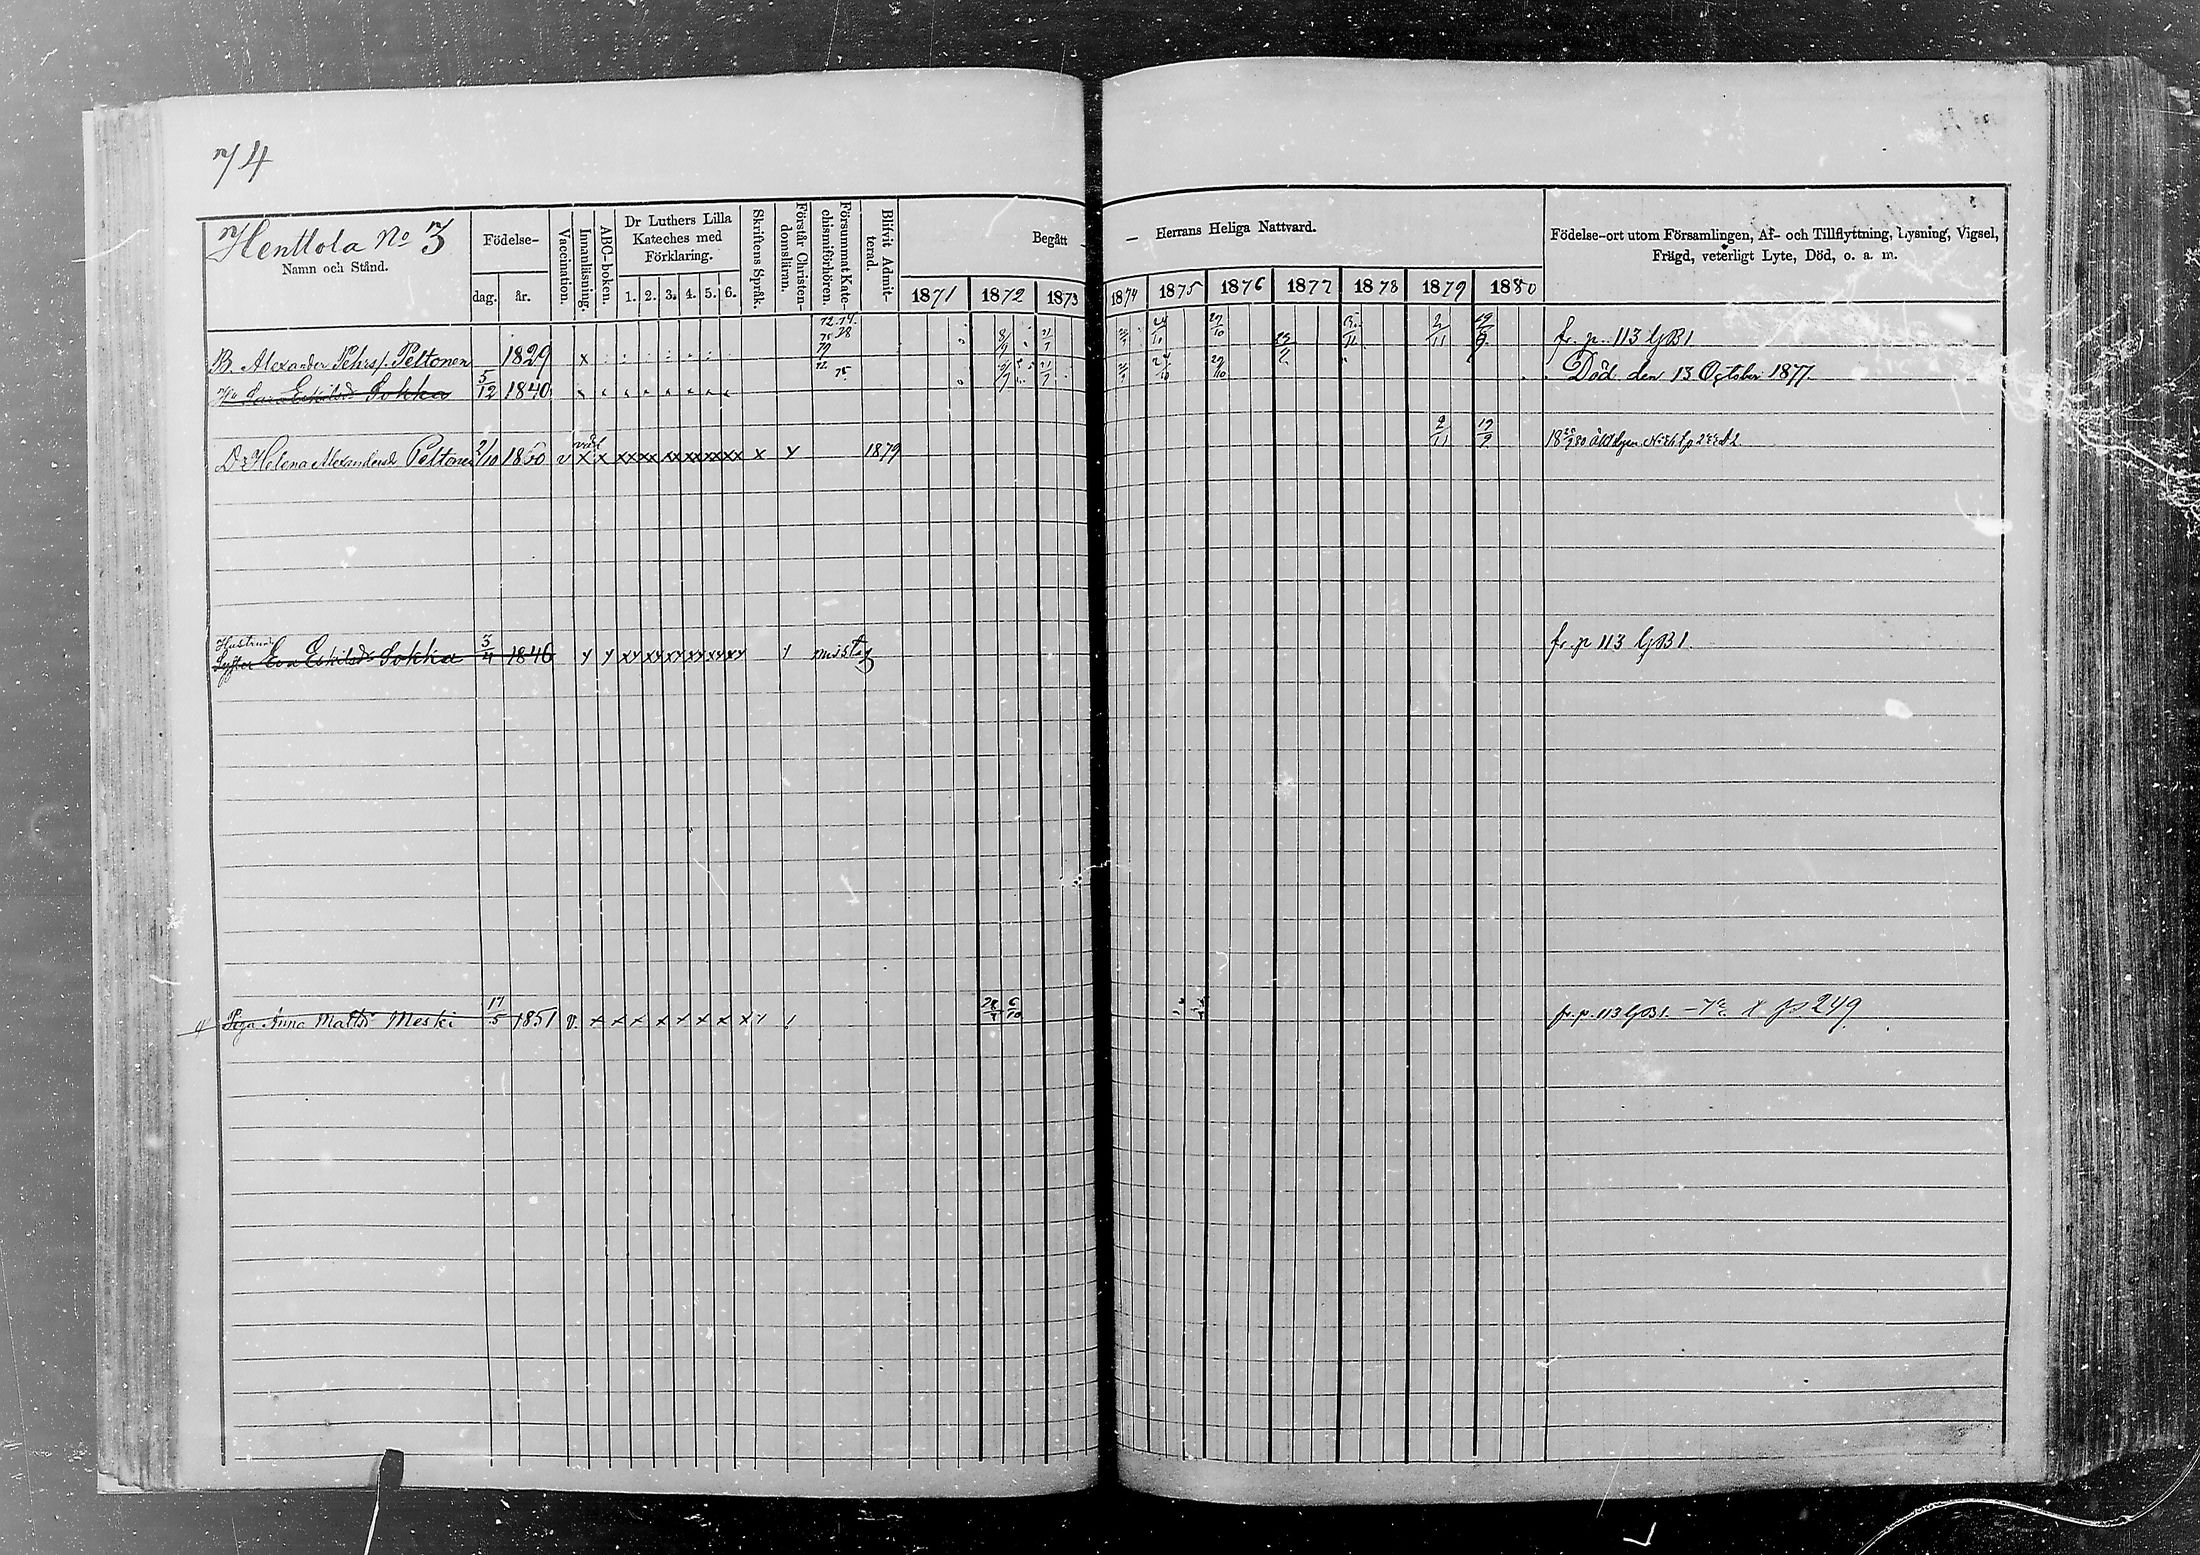 74
Henttola No 3
Namn och Stånd.
Födelse-
dag. år.
Vaccination.
Innanläsning.
ABC-boken.
Dr Luthers Lilla
Kateches med
Förklaring.
1. 2. 3. 4. 5. 6.
Skriftens Språk.
Förstår Christen-
domsläran.
Försummat Kate-
chismiförhören.
Blifvit Admit-
terad.
Begått — Herrans Heliga Nattvard.
1871 1872 1873 1874 1875 1876 1877 1878 1879 1880
Födelse-ort utom Församlingen, Af- och Tillflyttning, Lysning, Vigsel,
Frägd, veterligt Lyte, Död, o. a. m.
B. Alexander Pehrs. Peltonen 1829 x fr. p. 113 GB1
Eskilsd Sokka 5/12 1840 Död den 13 October 1877.
D. Helena Alexandersd Peltonen 2/10 1860 v x x xx xx xx xx xx xx x y 1879 2/11 19/9
Hustrun
Syster Eva Eskilsd Sokka 3/4 1846 y y xy xy xy xy xy xy y misstag fr. p 113 GB1.
Piga Anna Mattsd Meski 17/5 1851 v. x x x x x x x x fr. p. 113 GB1. 249